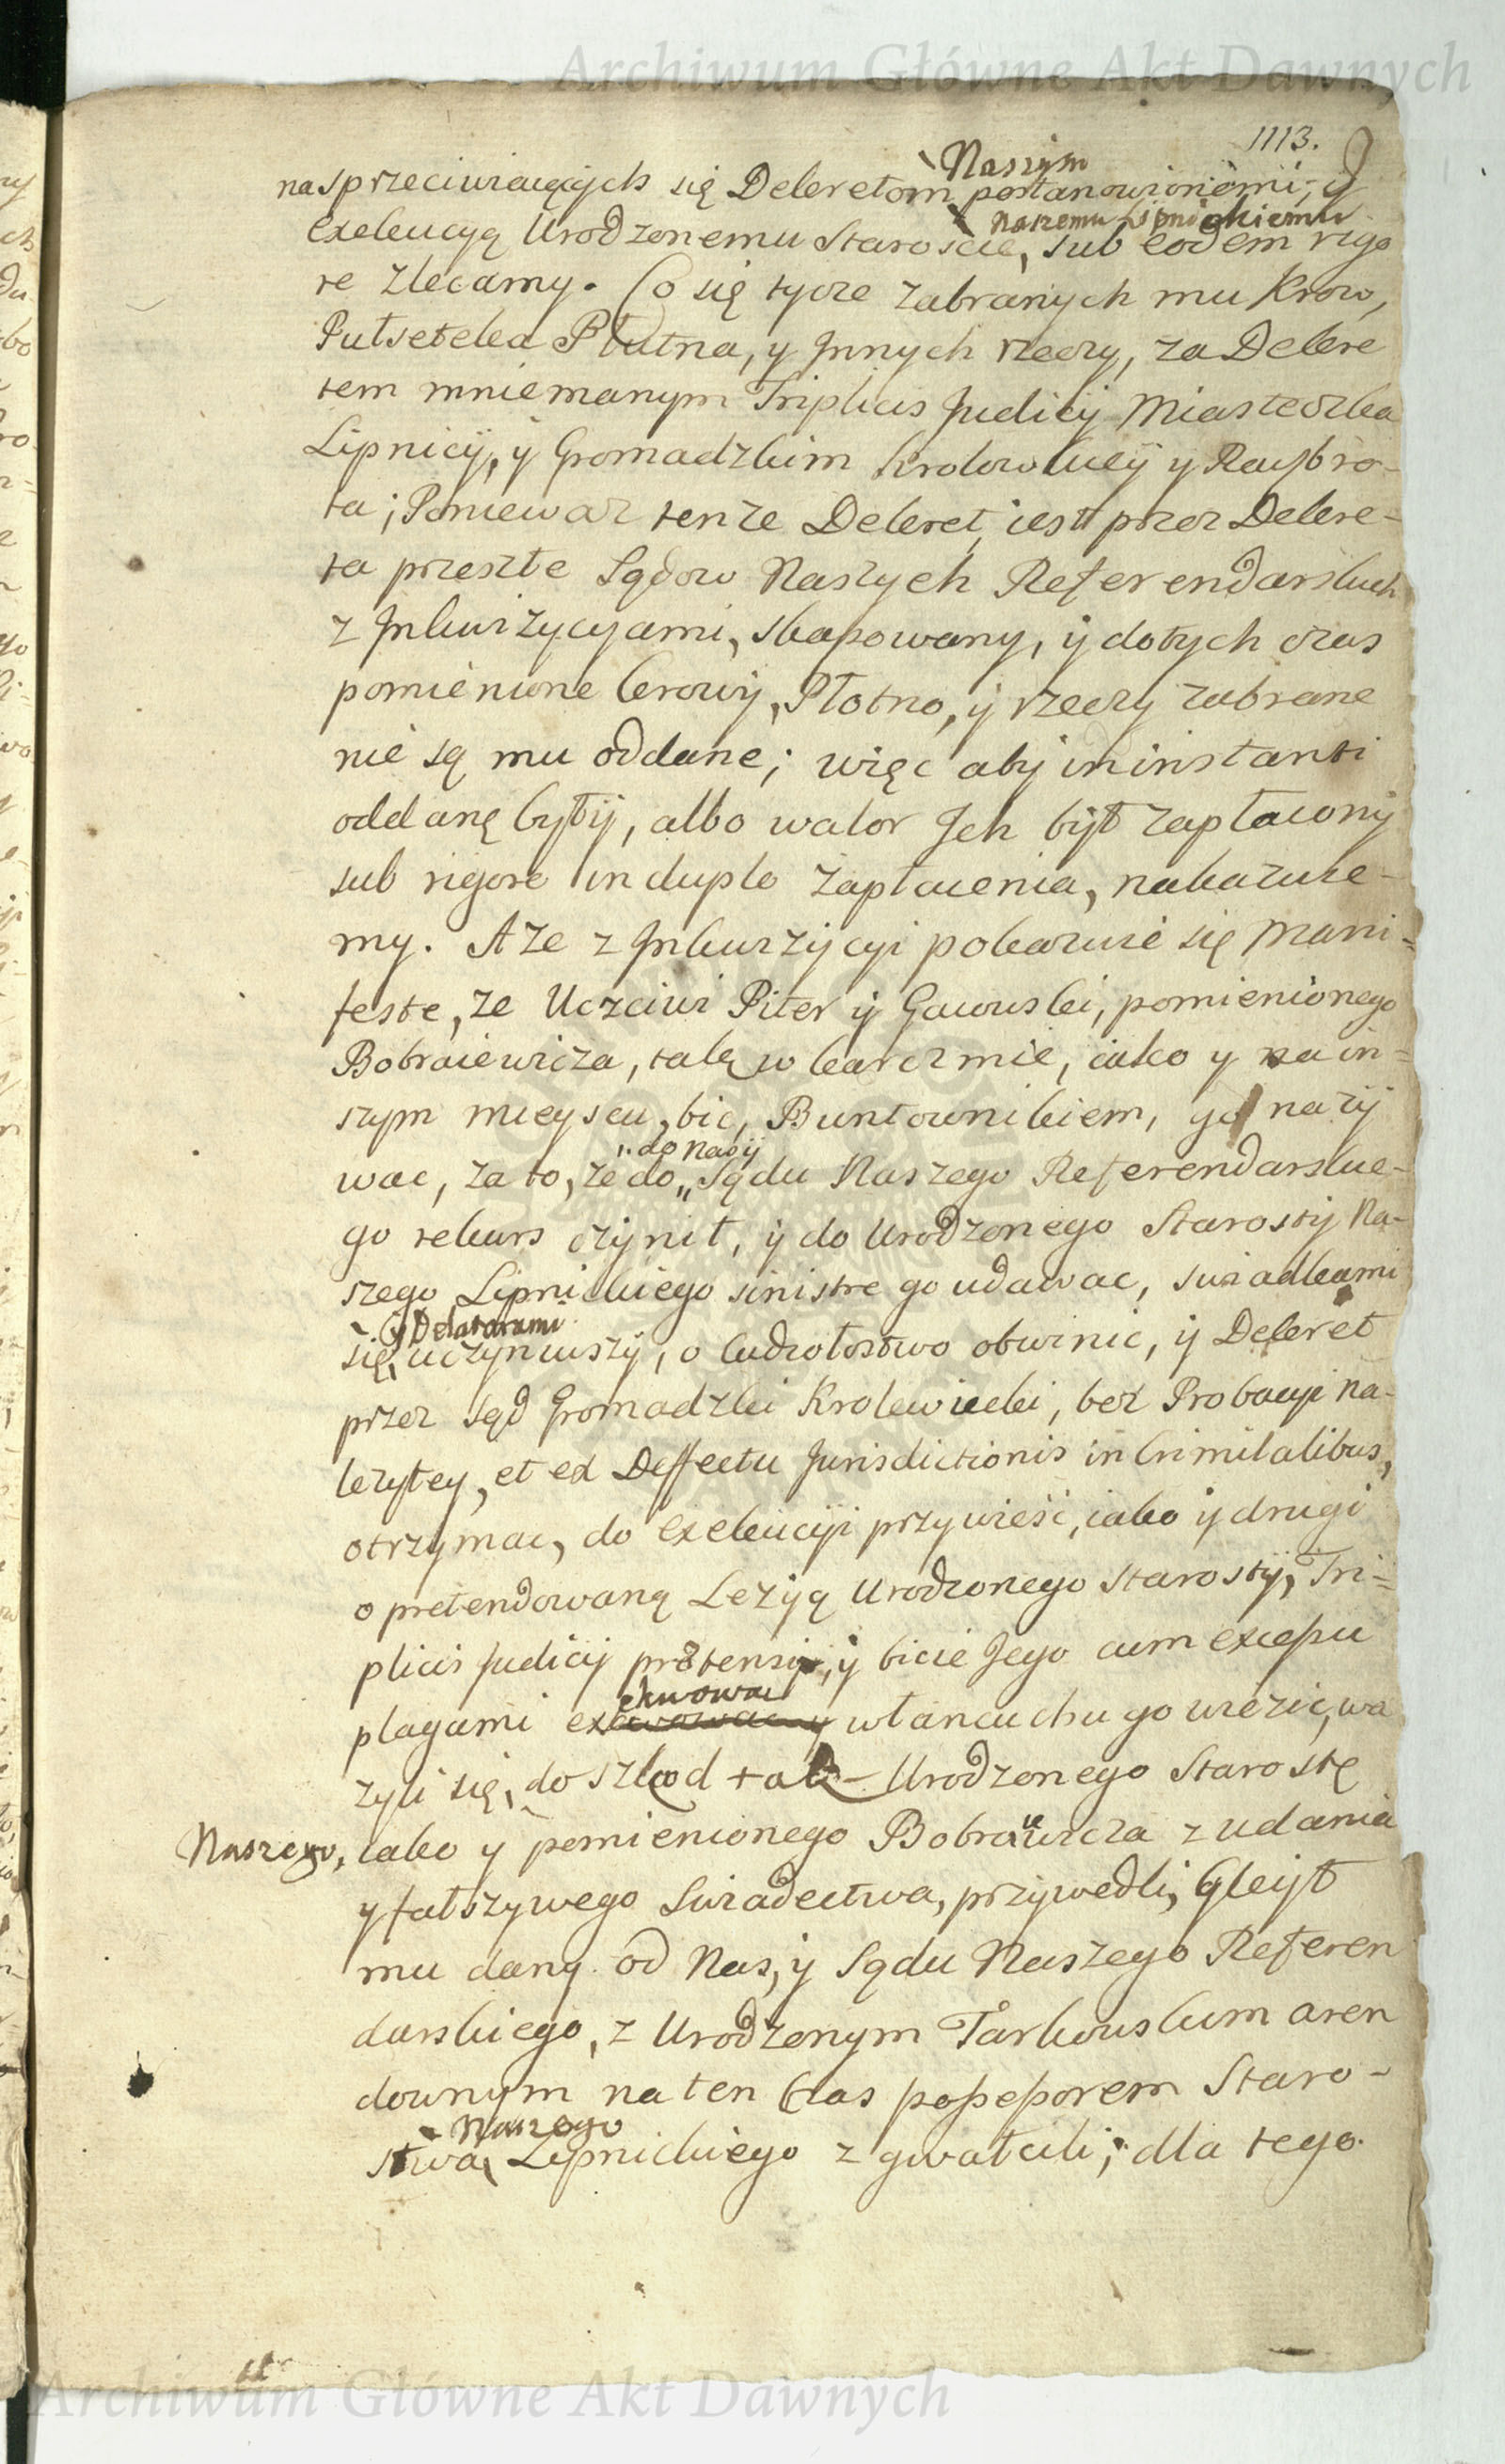 Archiwum Główne Akt Dawnych
1113.
Naszym
na sprzeciwiaiących się Dekretom postanowionemi, y
Naszemu Lipnickiemu
Exekucyą Urodzonemu Staroscie, sub eodem rigo
re zlecamy. Co się tycze zabranych mu Krow,
Pułsetka Płutna, y Jnnych rzeczy, za Dekre
tem mniemanym Triplicis Judicij Miasteczka
Lipnicÿ, ÿ Gromadzkim Krolowkieÿ y Raybro-
ta; Poniewaz tenze Dekret, iest przez Dekre-
ta przeszłe Sądow Naszych Referendarskich
z Jnkwizycyami, skassowany, ÿ dotych czas
pomienione krowÿ, Płotno, ÿ rzeczÿ zabrane
nie są mu oddane; więc abÿ in instanti
oddanę bÿłÿ, albo walor Jch bÿł zapłaconÿ
sub rigore in duplo zapłacenia, nakazuie-
my. A ze z Jnkwizÿcÿi pokazuie się Mani=
feste, ze Uczciwi Piter ÿ Gawuski, pomienionego
Bobraiewicza, tak w karczmie, iako y na in=
szym mieyscu, bic, Buntownikiem, go nazÿ
do Nasÿ
wac, za to, ze do Sądu Naszego Referendarskie-
go rekurs czÿnił, ÿ do Urodzonego Starostÿ Na-
szego Lipnickiego sinistre go udawac, swiadkami
y Delatorami
się uczÿniwszÿ, o cudzołostwo obwinic, ÿ Dekret
przez sąd Gromadzki Krolewiecki, bez Probacyi na-
lezytey, et ex Deffectu Jurisdictionis in Crimilalibus,
otrzymac, do exekucÿi przywieść, iako ÿ drugi
o pretendowaną Lezÿą Urodzonego Starostÿ, Tri=
plicis Judicÿ prætensi, ÿ bicie Jego cum excessu
ekwowac
plagami ex y włancuchu go wiezic, wa
zyli się, do szkod tak Urodzonego Starostę
Naszego, iako y pomienionego Bobraiewicza z udania
y fałszywego Swiadectwa, przÿwedli, Gleÿt
mu dany od Nas, ÿ Sądu Naszego Referen
darskiego, z Urodzonym Tarkowskim aren
downym na ten Czas possessorem Staro-
Naszego
stwa Lipnickiego zgwałcili; dla tego.
Archiwum Główne Akt Dawnych